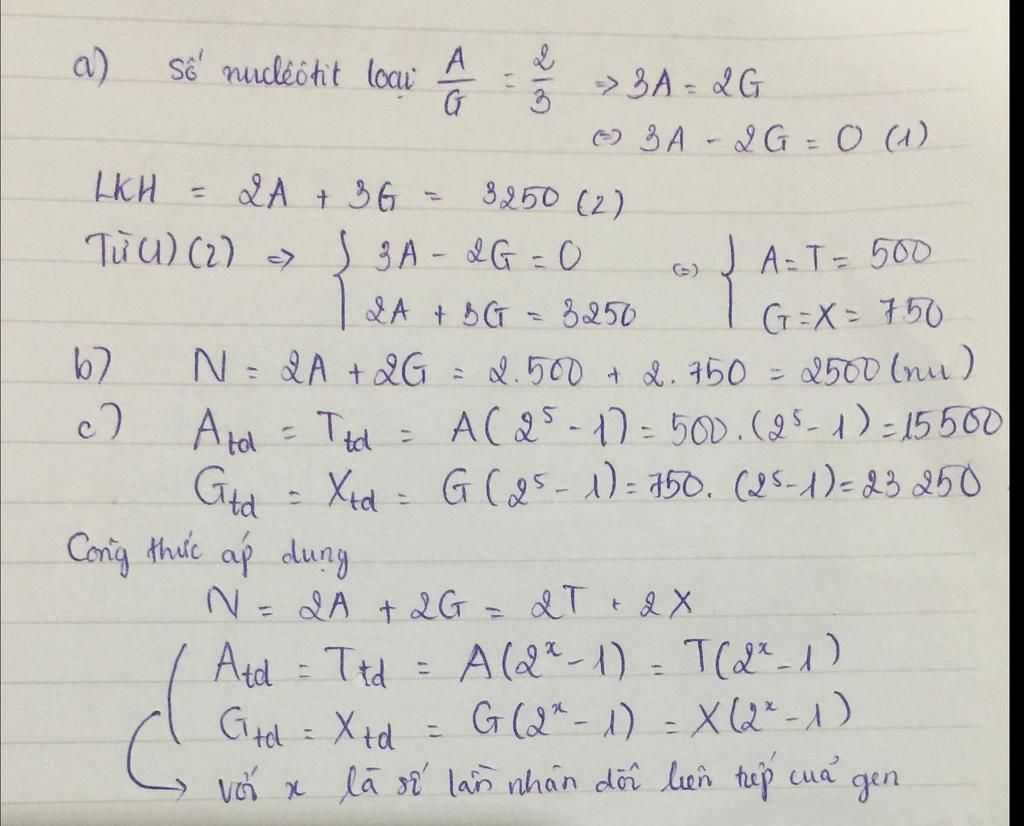 a) Số nuclêôtit loại A/G = 2/3 => 3A = 2G
<=> 3A - 2G = 0 (1)
LKH = 2A + 3G = 3250 (2)
Từ (1) (2) => { 3A - 2G = 0 <=> { A = T = 500
2A + 3G = 3250 G = X = 750
b) N = 2A + 2G = 2.500 + 2.750 = 2500 (nu)
c) Atd = Ttd = A(2⁵ - 1) = 500.(2⁵ - 1) = 15500
Gtd = Xtd = G(2⁵ - 1) = 750.(2⁵ - 1) = 23 250
Công thức áp dụng
N = 2A + 2G = 2T + 2X
Atd = Ttd = A(2ˣ - 1) = T(2ˣ - 1)
Gtd = Xtd = G(2ˣ - 1) = X(2ˣ - 1)
với x là số lần nhân đôi liên tiếp của gen